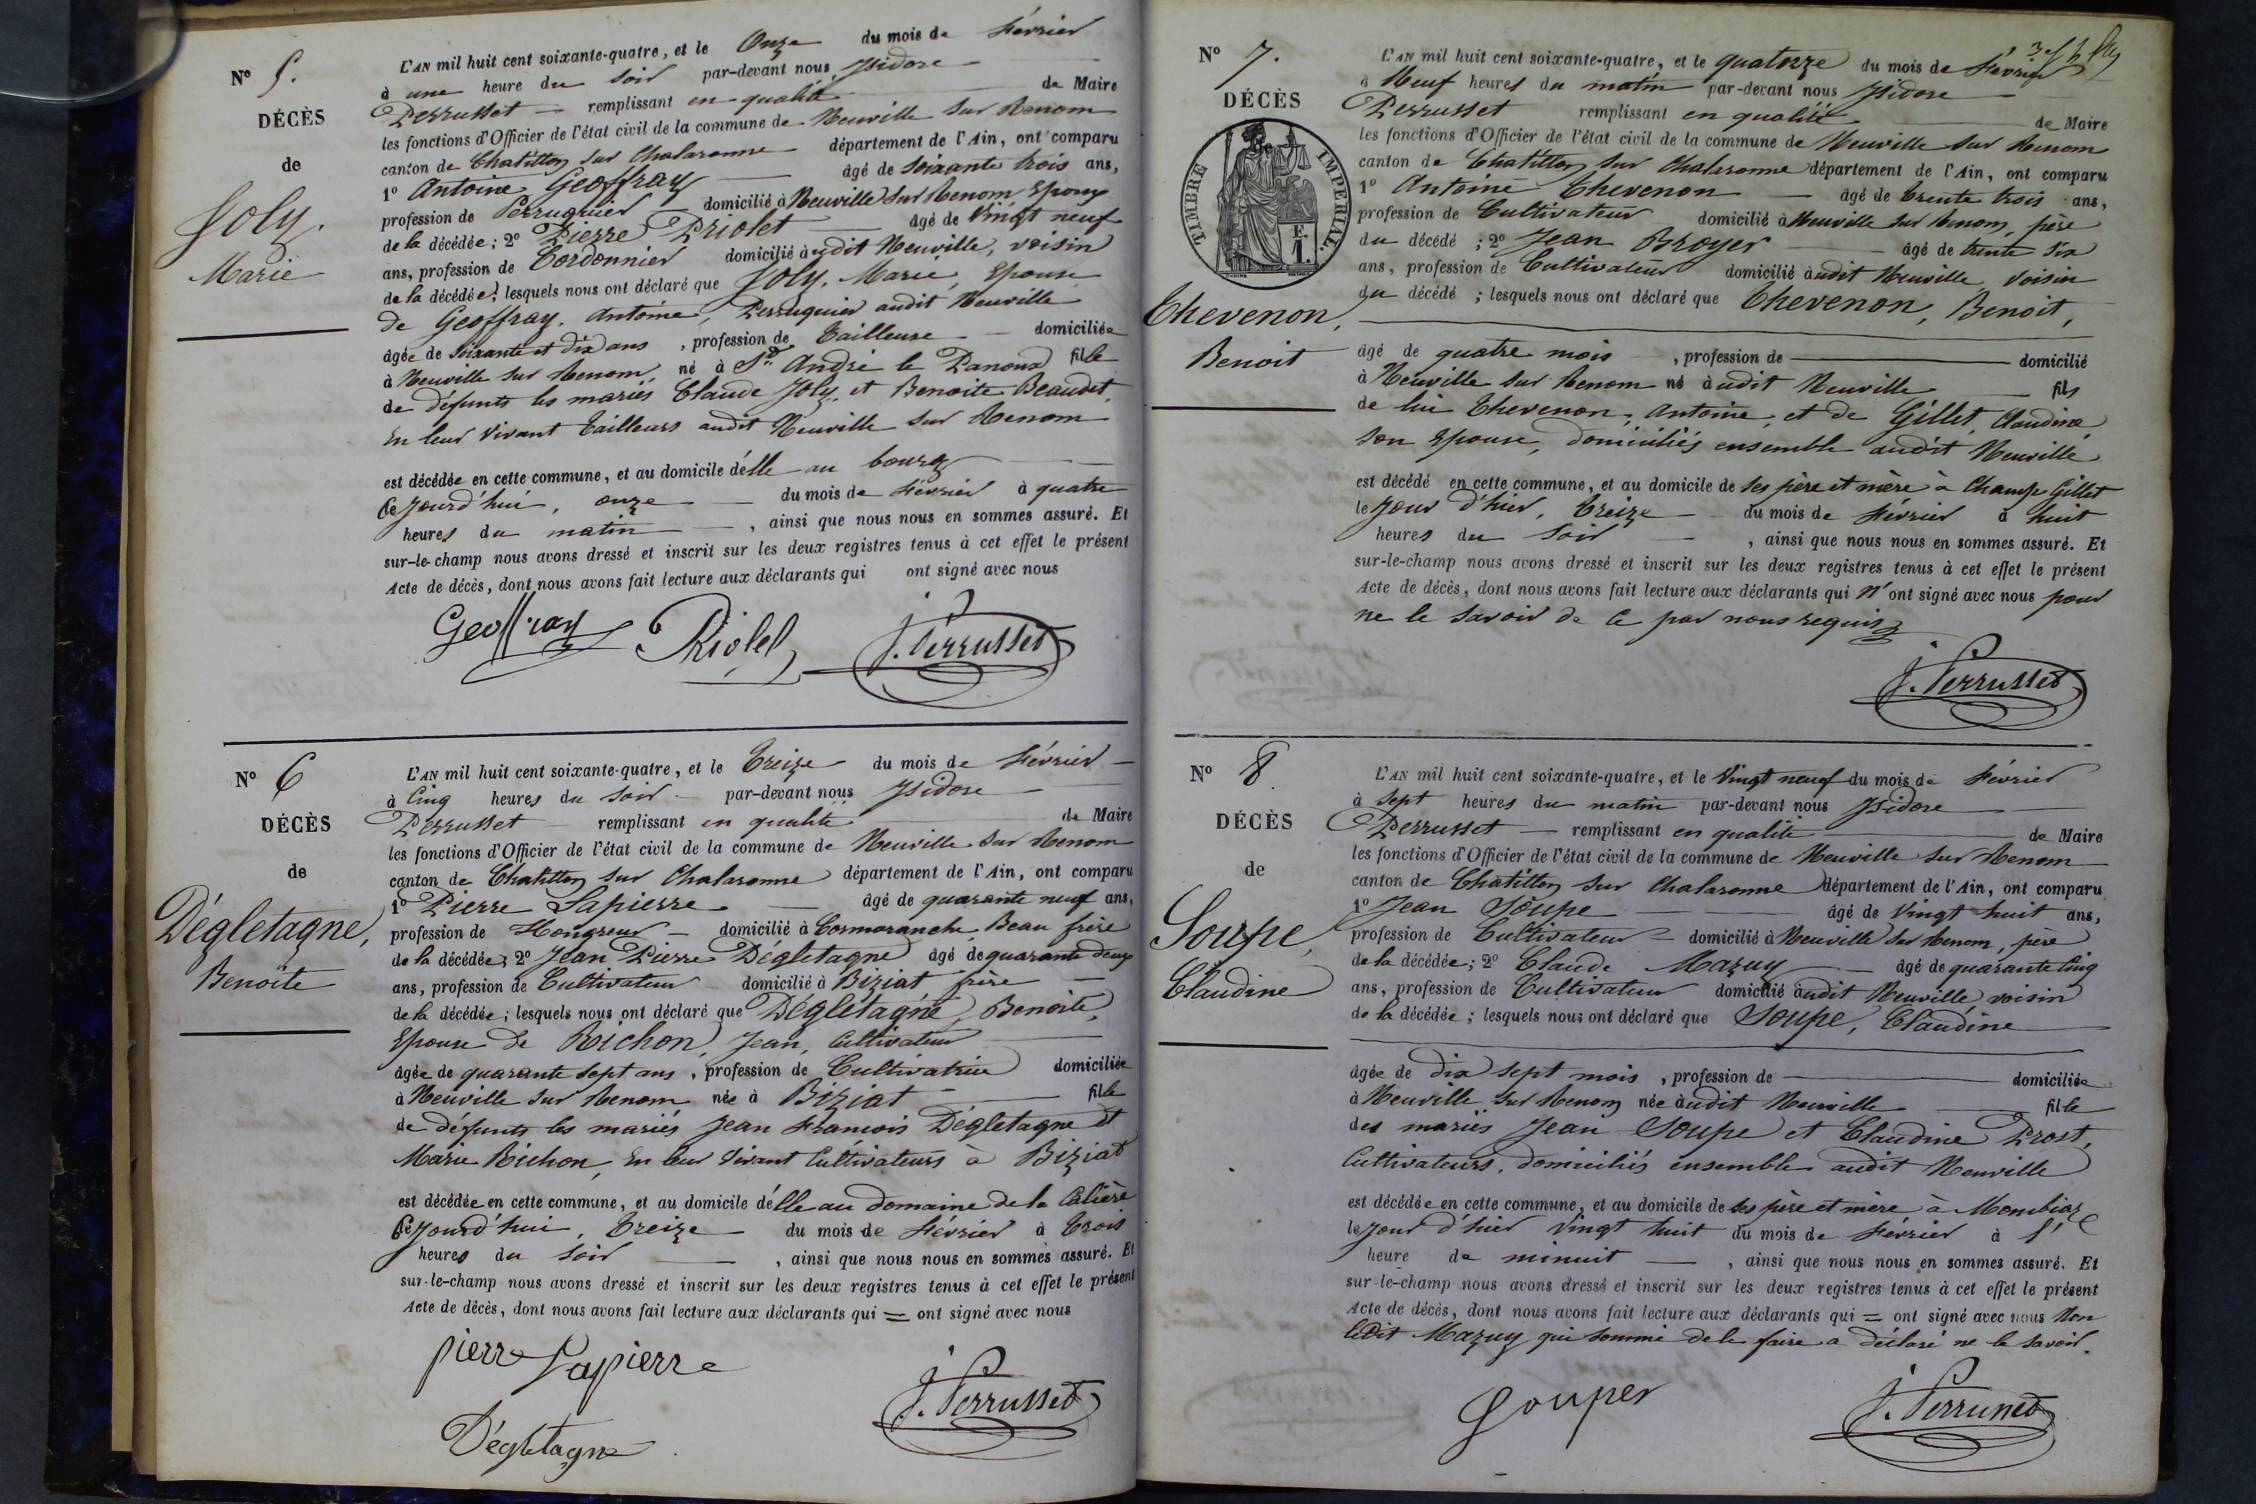 N° 5.
DÉCÈS
de
Joly.
Marie
L'AN mil huit cent soixante-quatre, et le Onze du mois de Février
à une heure du soir par-devant nous Isidore
Perrusset remplissant en qualité de Maire
les fonctions d'Officier de l'état civil de la commune de Neuville sur Renom
canton de Chatillon sur Chalaronne département de l'Ain, ont comparu
1° Antoine Geoffray âgé de soixante trois ans,
profession de Perruquier domicilié à Neuville sur Renom, Epoux
de la décédée; 2° Pierre Priolet âgé de Vingt neuf
ans, profession de Cordonnier domicilié à udit Neuville, voisin
de la décédée; lesquels nous ont déclaré que Joly, Marie, Epouse
de Geoffray, Antoine, Perruquier audit Neuville
âgée de soixante et dix ans, profession de Tailleuse domiciliée
à Neuville sur Renom, né à St André le Panoux fille
de défunts les mariés Claude Joly, et Benoite Beaudet,
En leur Vivant Tailleurs audit Neuville sur Renom
est décédée en cette commune, et au domicile d'elle au bourg
Ce jourd'hui, onze du mois de Février à quatre
heures du matin, ainsi que nous nous en sommes assuré. Et
sur-le-champ nous avons dressé et inscrit sur les deux registres tenus à cet effet le présent
Acte de décès, dont nous avons fait lecture aux déclarants qui ont signé avec nous
Geoffray Priolet J. Perrusset
N° 6
DÉCÈS
de
Dégletagne,
Benoite
L'AN mil huit cent soixante-quatre, et le Treize du mois de Février
à Cinq heures du soir par-devant nous Isidore
Perrusset remplissant en qualité de Maire
les fonctions d'Officier de l'état civil de la commune de Neuville sur Renom
canton de Chatillon sur Chalaronne département de l'Ain, ont comparu
1° Pierre Lapierre âgé de quarante neuf ans,
profession de Hongreur domicilié à Cormoranche, Beau frère
de la décédée; 2° Jean Pierre Dégletagne âgé de quarante deux
ans, profession de Cultivateur domicilié à Biziat frère
de la décédée; lesquels nous ont déclaré que Dégletagne, Benoite,
Epouse de Richon, Jean, Cultivateur
âgée de quarante sept ans, profession de Cultivatrice domiciliée
à Neuville sur Renom née à Biziat fille
de défunts les mariés Jean François Dégletagne et
Marie Richon, En leur Vivant Cultivateurs à Biziat
est décédée en cette commune, et au domicile d'elle au domaine de la
Ce jourd'hui, Treize du mois de Février à Trois
heures du soir, ainsi que nous nous en sommes assuré. Et
sur-le-champ nous avons dressé et inscrit sur les deux registres tenus à cet effet le présent
Acte de décès, dont nous avons fait lecture aux déclarants qui = ont signé avec nous
pierre Lapierre
J. Perrusset
Dégletagne
N° 7.
DÉCÈS
TIMBRE IMPERIAL
E.
1.
Chevenon,
Benoit
L'AN mil huit cent soixante-quatre, et le quatorze du mois de Février
à Neuf heures du matin par-devant nous Isidore
Perrusset remplissant en qualité de Maire
les fonctions d'Officier de l'état civil de la commune de Neuville sur Renom
canton de Chatillon sur Chalaronne département de l'Ain, ont comparu
1° Antoine Chevenon âgé de trente trois ans,
profession de Cultivateur domicilié à Neuville sur Renom, père
du décédé; 2° Jean Broyer âgé de trente six
ans, profession de Cultivateur domicilié à udit Neuville, voisin
du décédé; lesquels nous ont déclaré que Chevenon, Benoit,
âgé de quatre mois, profession de domicilié
à Neuville sur Renom né à udit Neuville fils
de lui Chevenon, Antoine, et de Gillet, Claudine,
son Epouse, domiciliés ensemble audit Neuville
est décédé en cette commune, et au domicile de ses père et mère à Champ Gillet
le Jour d'hier, Treize du mois de Février à huit
heures du soir, ainsi que nous nous en sommes assuré. Et
sur-le-champ nous avons dressé et inscrit sur les deux registres tenus à cet effet le présent
Acte de décès, dont nous avons fait lecture aux déclarants qui n'ont signé avec nous pour
ne le savoir de ce par nous requis
J. Perrusset
N° 8
DÉCÈS
de
Soupe,
Claudine
L'AN mil huit cent soixante-quatre, et le Vingt neuf du mois de Février
à sept heures du matin par-devant nous Isidore
Perrusset remplissant en qualité de Maire
les fonctions d'Officier de l'état civil de la commune de Neuville sur Renom
canton de Chatillon sur Chalaronne département de l'Ain, ont comparu
1° Jean Soupe âgé de Vingt huit ans,
profession de Cultivateur domicilié à Neuville sur Renom, père
de la décédée; 2° Claude Mazuy âgé de quarante cinq
ans, profession de Cultivateur domicilié à udit Neuville, voisin
de la décédée; lesquels nous ont déclaré que Soupe, Claudine
âgée de dix sept mois, profession de domiciliée
à Neuville sur Renom née à udit Neuville fille
des mariés Jean Soupe et Claudine Prost,
Cultivateurs, domiciliés ensemble audit Neuville
est décédée en cette commune, et au domicile de ses père et mère à
le Jour d'hier Vingt huit du mois de Février à l'
heure de minuit, ainsi que nous nous en sommes assuré. Et
sur-le-champ nous avons dressé et inscrit sur les deux registres tenus à cet effet le présent
Acte de décès, dont nous avons fait lecture aux déclarants qui = ont signé avec nous Non
ledit Mazuy qui sommé de le faire a déclaré ne le savoir.
Soupe J. Perrusset